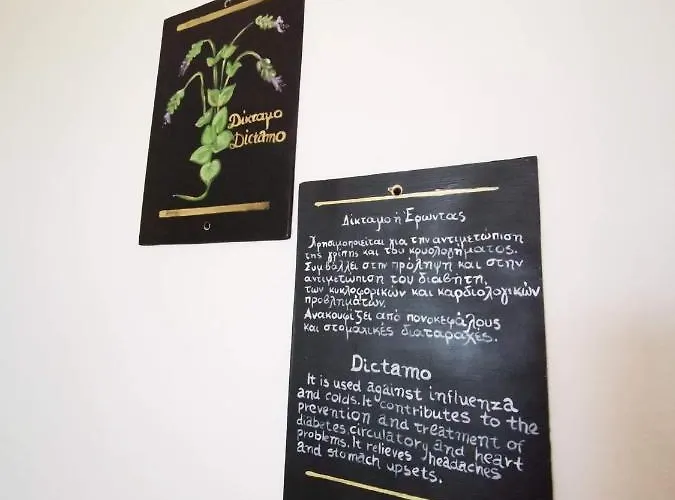 Δίκταμο
Dictamo
Δίκταμο ή Έρωντας
Χρησιμοποιείται για την αντιμετώπιση
της γρίπης και του κρυολογήματος.
Συμβάλλει στην πρόληψη και στην
αντιμετώπιση του διαβήτη,
των κυκλοφορικών και καρδιολογικών
προβλημάτων.
Ανακουφίζει από πονοκεφάλους
και στομαχικές διαταραχές.
Dictamo
It is used against influenza
and colds. It contributes to the
prevention and treatment of
diabetes, circulatory and heart
problems. It relieves headaches
and stomach upsets.